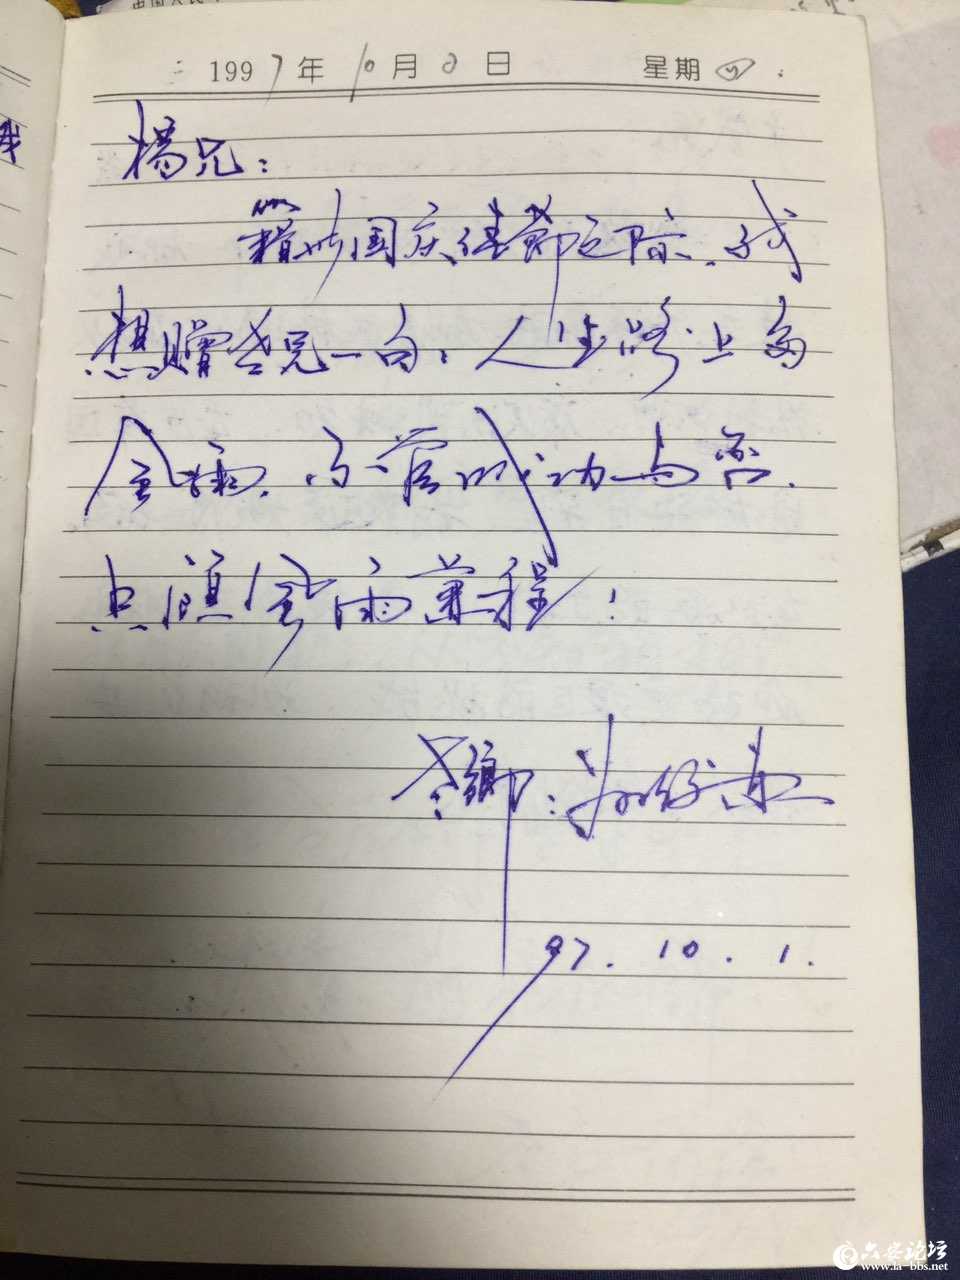 1997年10月2日 星期四
楊兄：
藉此国庆佳節之际，我
想贈吾兄一句：人生路上多
金榜，不管成功与否，
点滴风雨兼程！
老鄉：
97.10.1.
六安论坛
www.la-bbs.net